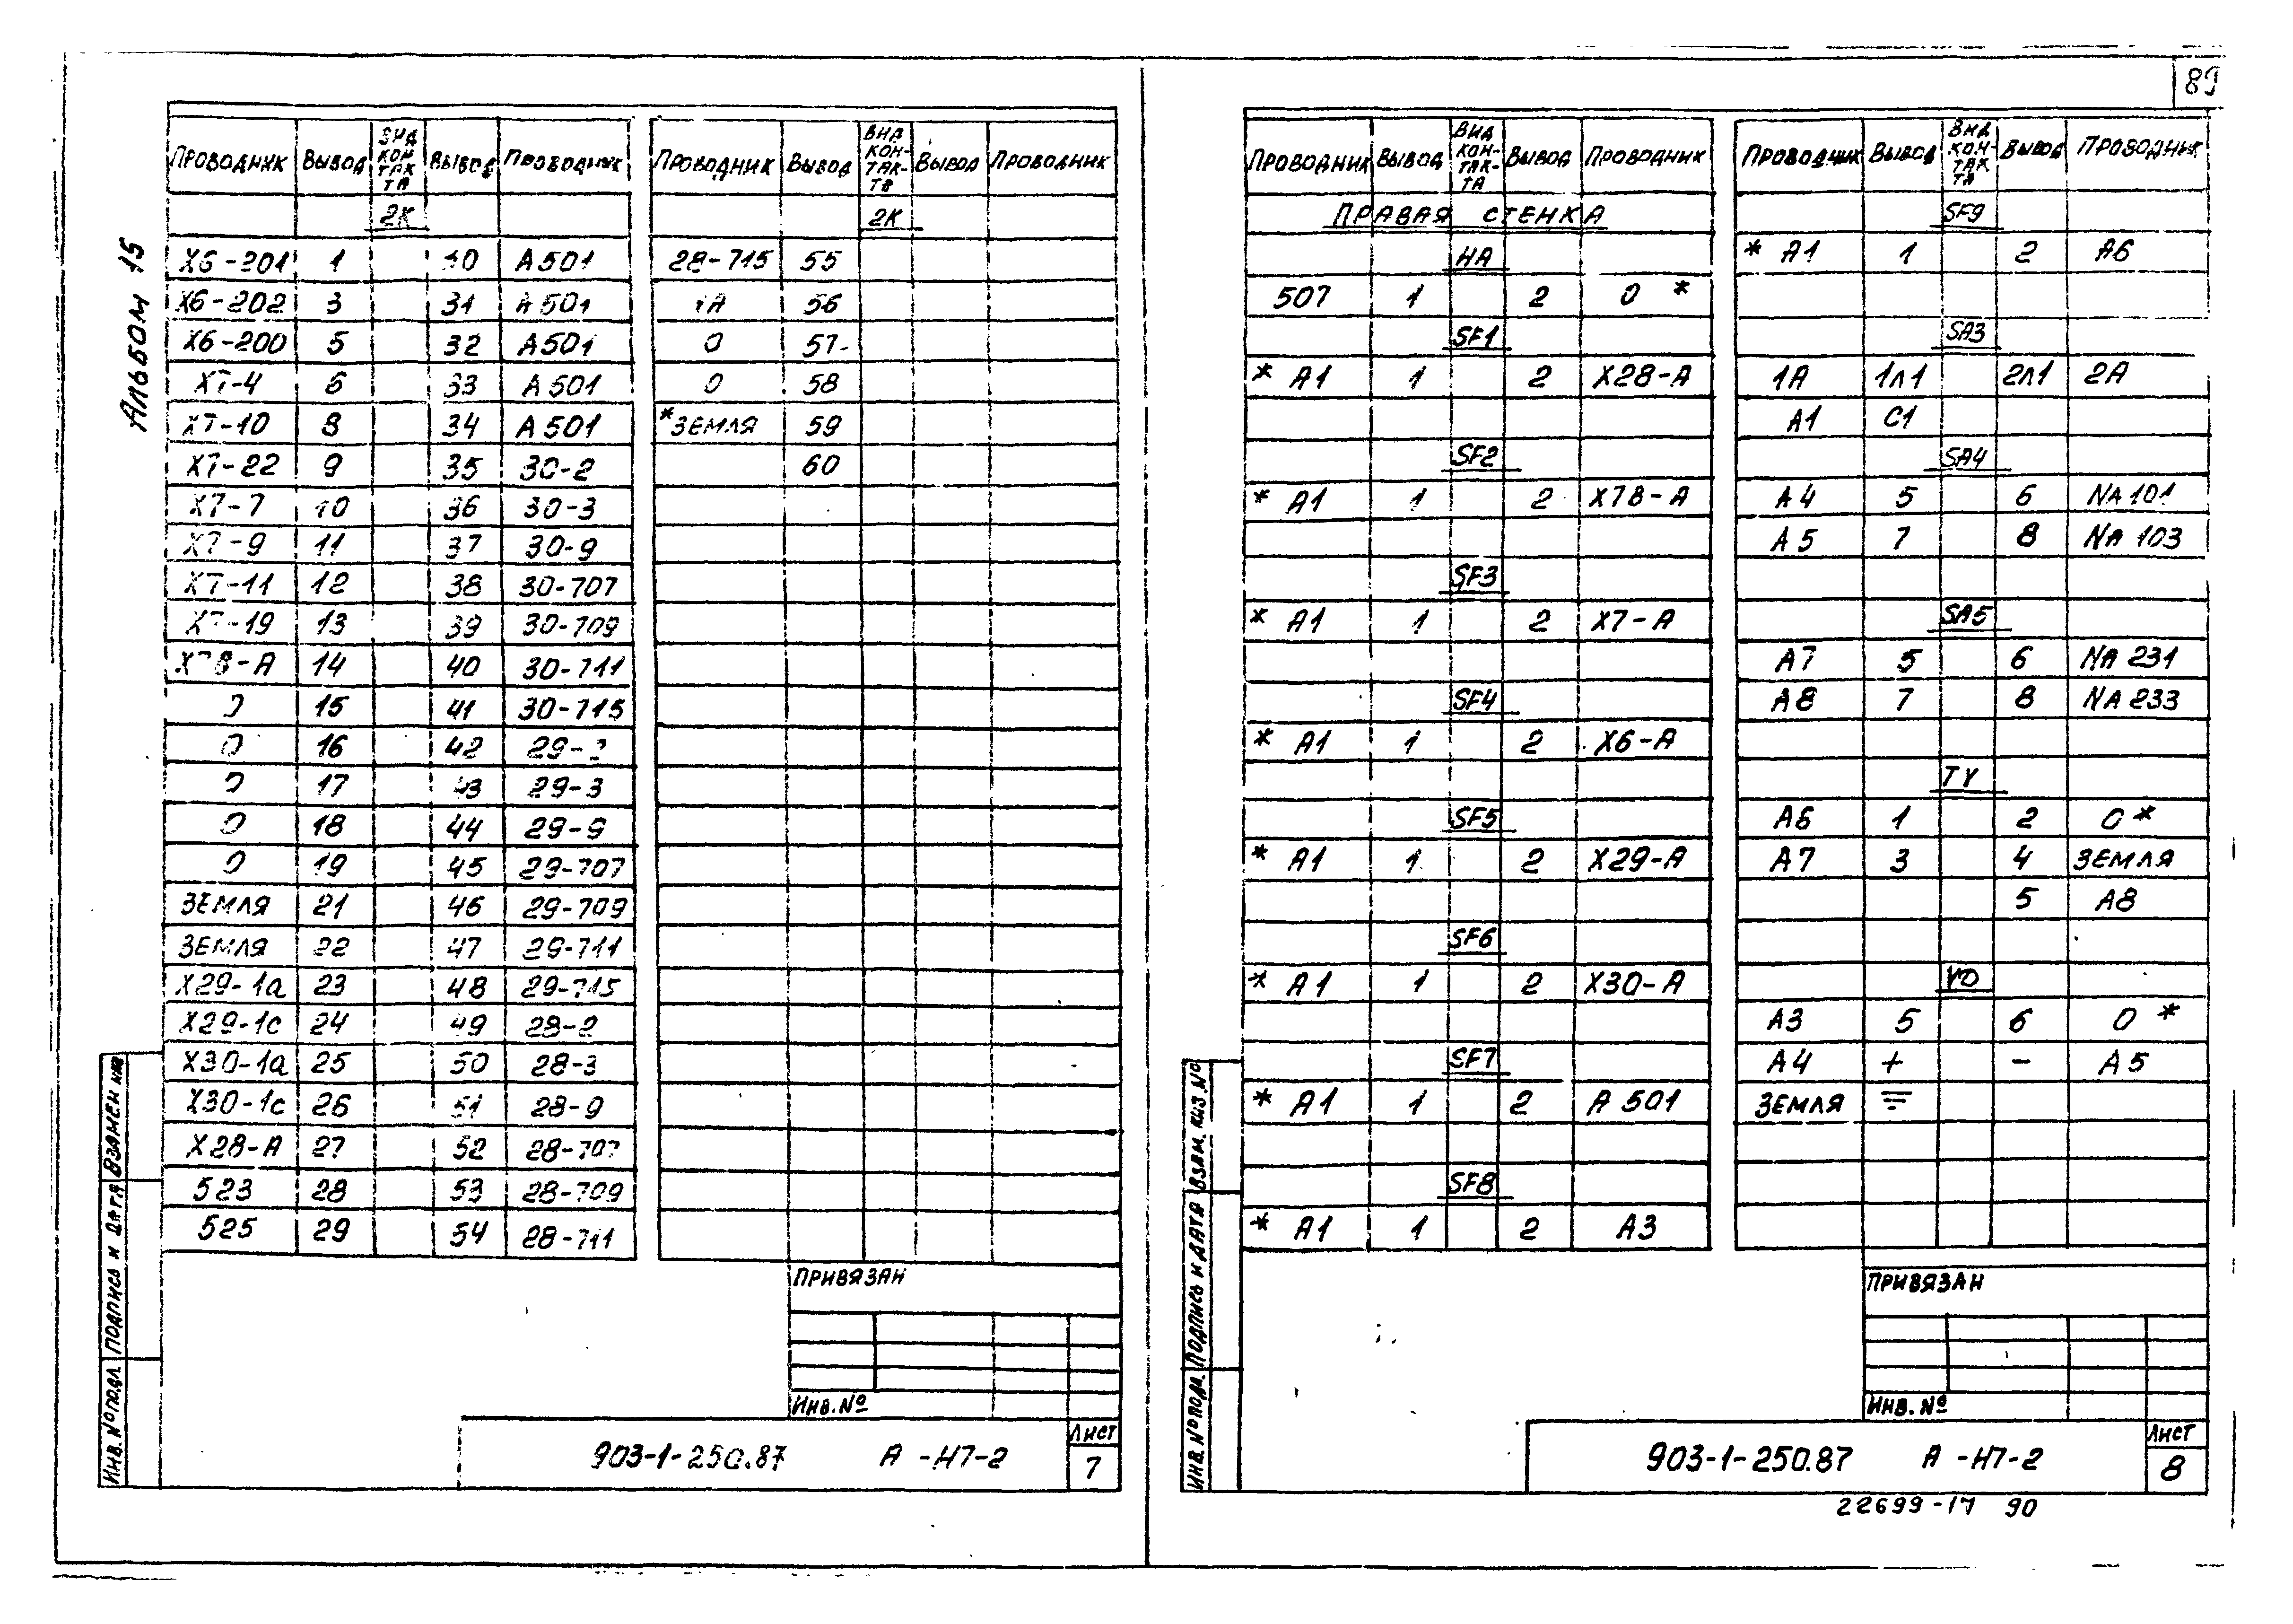 89
Альбом 15
Проводник Вывод Вид контакта Вывод Проводник
2К
Х6-201 1 30 А501
Х6-202 3 31 А501
Х6-200 5 32 А501
Х7-4 6 33 А501
Х7-10 8 34 А501
Х7-22 9 35 30-2
Х7-7 10 36 30-3
Х7-9 11 37 30-9
Х7-11 12 38 30-707
Х7-19 13 39 30-709
Х78-А 14 40 30-711
0 15 41 30-715
0 16 42 29-
0 17 43 29-3
0 18 44 29-9
0 19 45 29-707
ЗЕМЛЯ 21 46 29-709
ЗЕМЛЯ 22 47 29-711
Х29-1а 23 48 29-715
Х29-1с 24 49 28-2
Х30-1а 25 50 28-3
Х30-1с 26 51 28-9
Х28-А 27 52 28-707
523 28 53 28-709
525 29 54 28-711
Проводник Вывод Вид контак-та Вывод Проводник
2К
28-715 55
1А 56
0 57
0 58
*ЗЕМЛЯ 59
60
ПРИВЯЗАН
ИНВ.№
903-1-250.87 А -Н7-2
Лист
7
ИНВ.№подл. Подпись и дата Взамен инв
Проводник Вывод Вид кон-так-та Вывод Проводник
ПРАВАЯ СТЕНКА
НА
507 1 2 0 *
SF1
* А1 1 2 Х28-А
SF2
* А1 1 2 Х78-А
SF3
* А1 1 2 Х7-А
SF4
* А1 1 2 Х6-А
SF5
* А1 1 2 Х29-А
SF6
* А1 1 2 Х30-А
SF7
* А1 1 2 А501
SF8
* А1 1 2 А3
Проводник Вывод Вид кон-так та Вывод Проводник
SF9
* А1 1 2 А6
SA3
1А 1л1 2л1 2А
А1 С1
SA4
А4 5 6 NA101
А5 7 8 NA 103
SA5
А7 5 6 NA 231
А8 7 8 NA 233
TV
А6 1 2 0 *
А7 3 4 ЗЕМЛЯ
5 А8
А3 5 6 0 *
А4 + − А5
ЗЕМЛЯ ⏚
ПРИВЯЗАН
ИНВ. №
903-1-250.87 А -Н7-2
Лист
8
ИНВ.№подл. Подпись и дата Взам. инв.№
22699-17 90